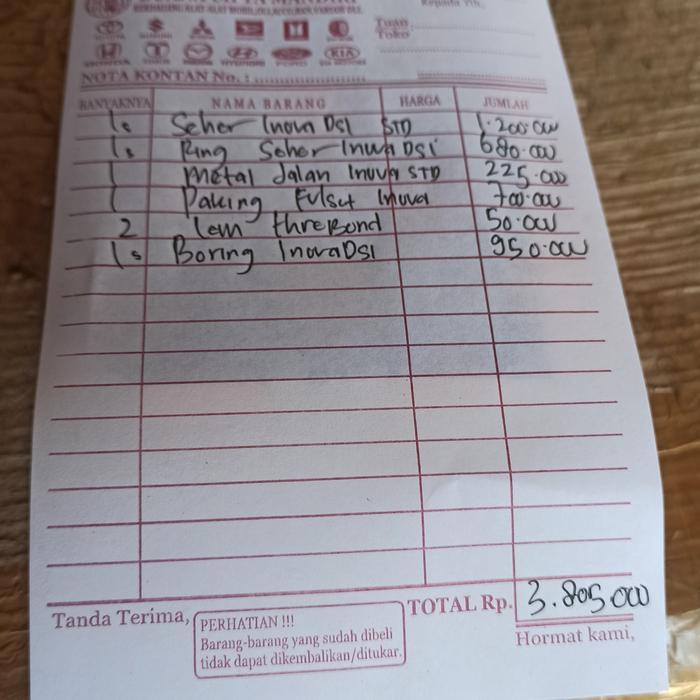 Kepada Yth.
Tuan
Toko
NOTA KONTAN No. :
BANYAKNYA NAMA BARANG HARGA JUMLAH
1s Seher Inova DSI STD 1.200.000
1s Ring Seher Inova DSi 680.000
1 Metal Jalan Inova STD 225.000
1 Paking Fulset Inova 700.000
2 lem threBond 50.000
1s Boring Inova DSI 950.000
TOTAL Rp. 3.805.000
Tanda Terima,
PERHATIAN !!!
Barang-barang yang sudah dibeli
tidak dapat dikembalikan/ditukar.
Hormat kami,